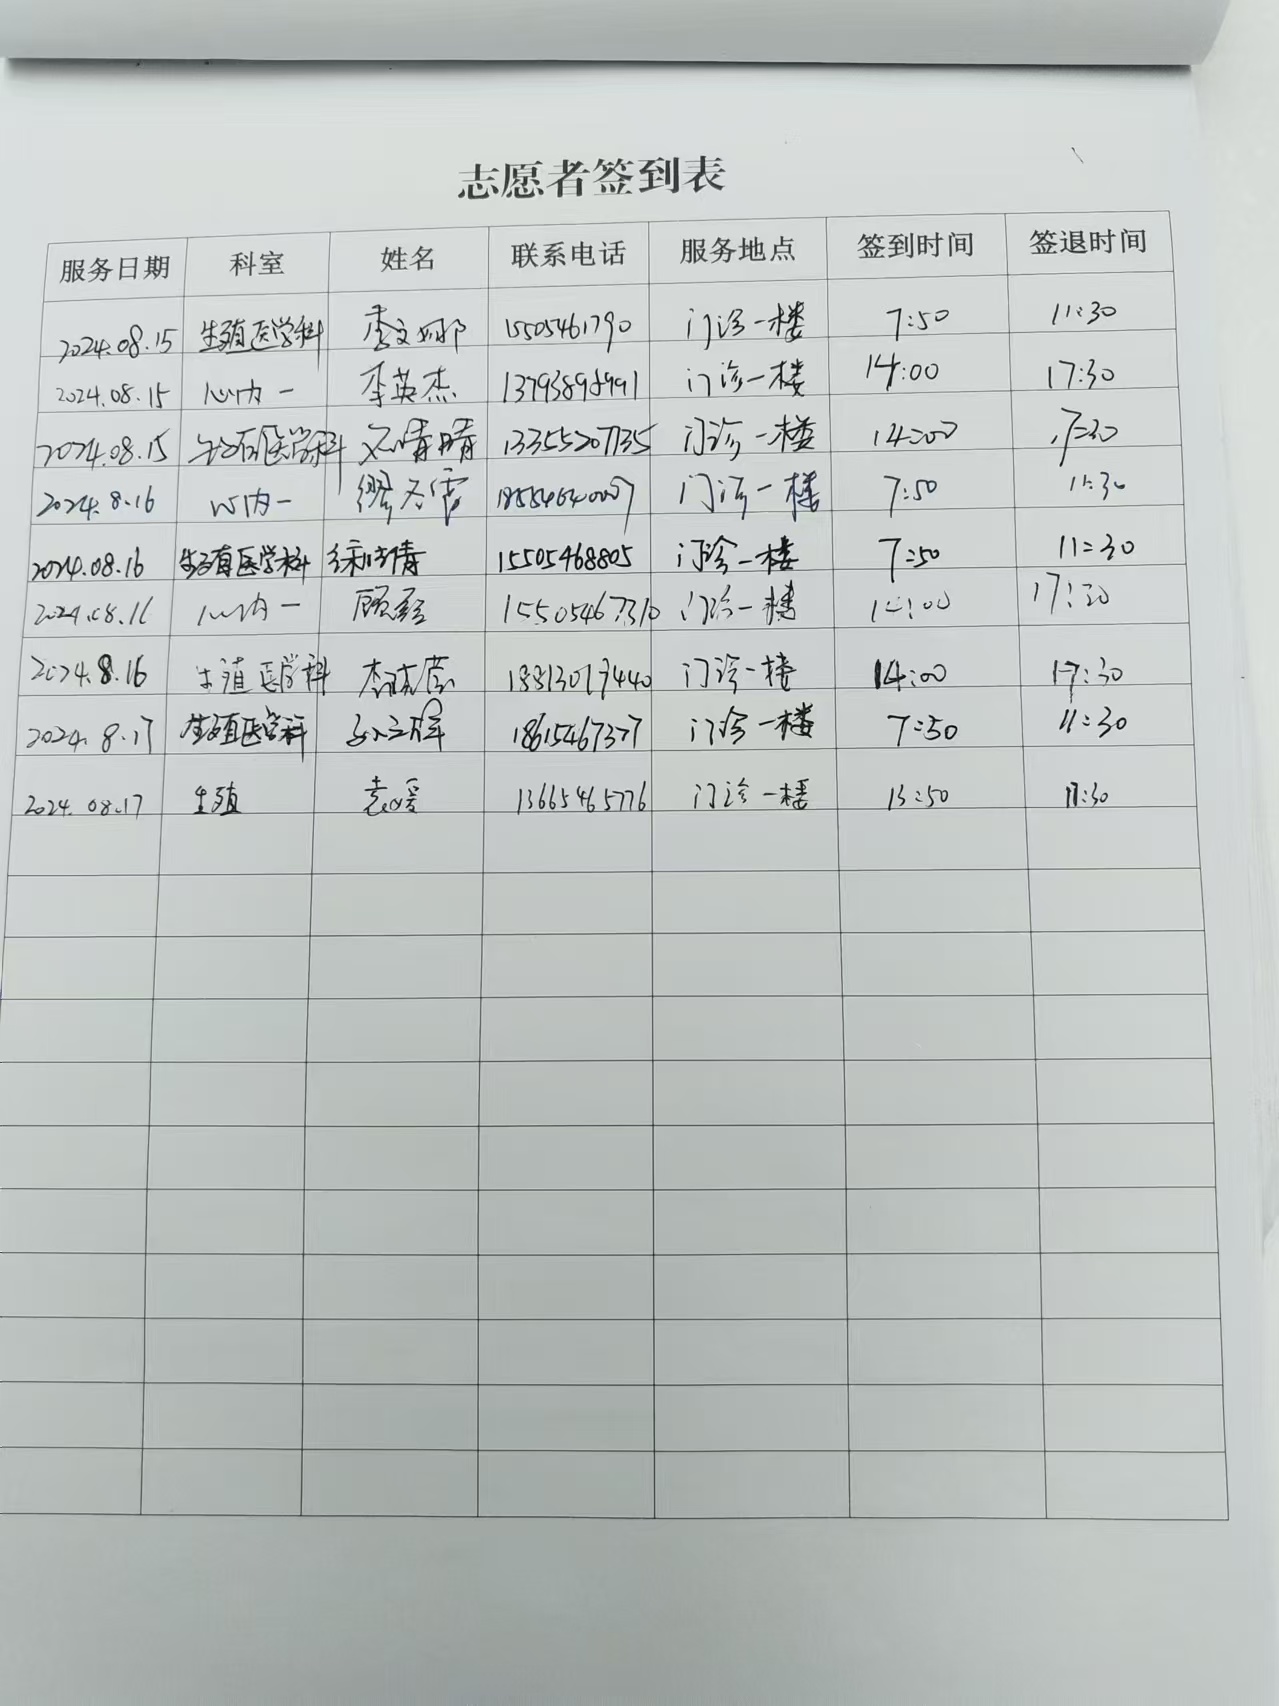 志愿者签到表
服务日期 科室 姓名 联系电话 服务地点 签到时间 签退时间
2024.08.15 生殖医学科 李文娜 15505461790 门诊一楼 7:50 11:30
2024.08.15 心内一 李英杰 门诊一楼 14:00 17:30
2024.08.15 生殖医学科 晴晴 13355207735 门诊一楼 14:00 17:30
2024.8.16 心内一 门诊一楼 7:50 11:30
2024.08.16 生殖医学科 徐倩倩 15505468805 门诊一楼 7:50 11:30
2024.08.16 心内一 15505467310 门诊一楼 14:00 17:30
2024.8.16 生殖医学科 门诊一楼 14:00 17:30
2024.8.17 生殖医学科 18615467377 门诊一楼 7:50 11:30
2024.08.17 生殖 袁媛 13665465776 门诊一楼 13:50 17:30